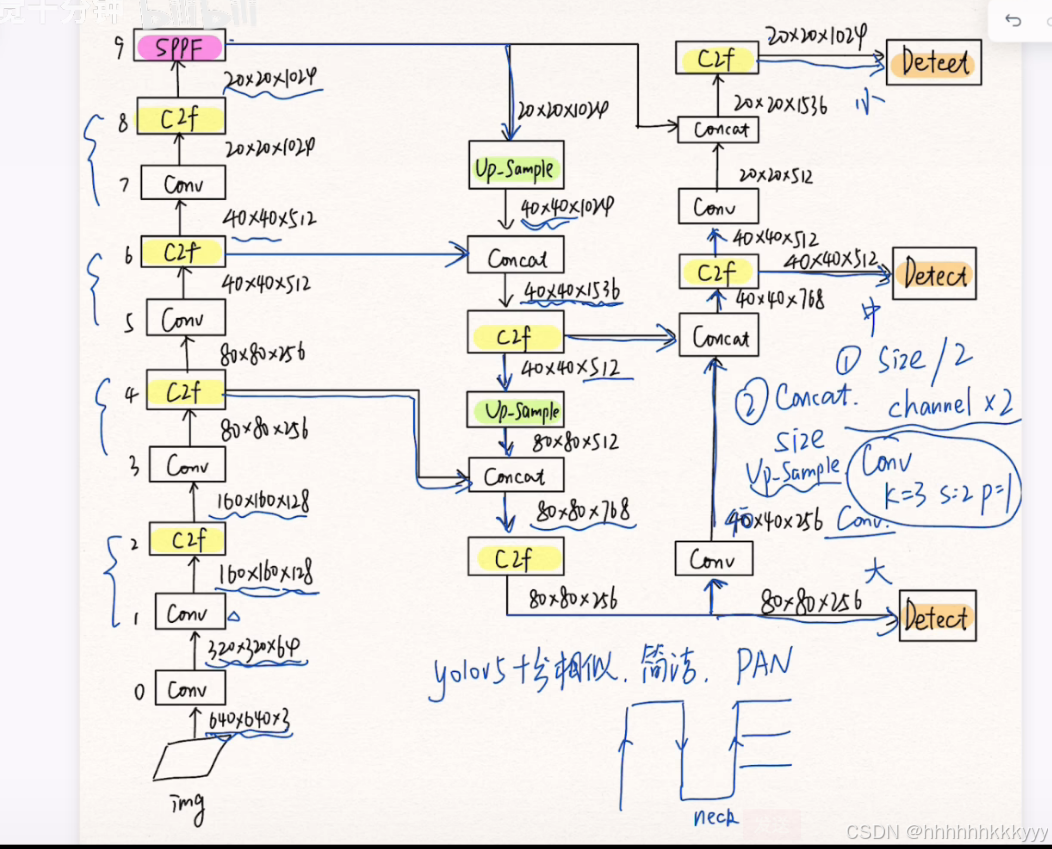 9 SPPF
20×20×1024
8 C2f
20×20×1024
7 Conv
40×40×512
6 C2f
40×40×512
5 Conv
80×80×256
4 C2f
80×80×256
3 Conv
160×160×128
2 C2f
160×160×128
1 Conv
320×320×64
0 Conv
640×640×3
img
20×20×1024
Up-Sample
40×40×1024
Concat
40×40×1536
C2f
40×40×512
Up-Sample
80×80×512
Concat
80×80×768
C2f
80×80×256
20×20×1024
C2f
Detect
小
20×20×1536
Concat
20×20×512
Conv
40×40×512
C2f
40×40×512
Detect
中
40×40×768
Concat
① size/2
② Concat.
channel×2
size
Up-Sample
Conv
k=3 s=2 p=1
40×40×256
Conv.
Conv
大
80×80×256
Detect
yolov5十分相似.简洁. PAN
neck
CSDN @hhhhhhkkkyyy